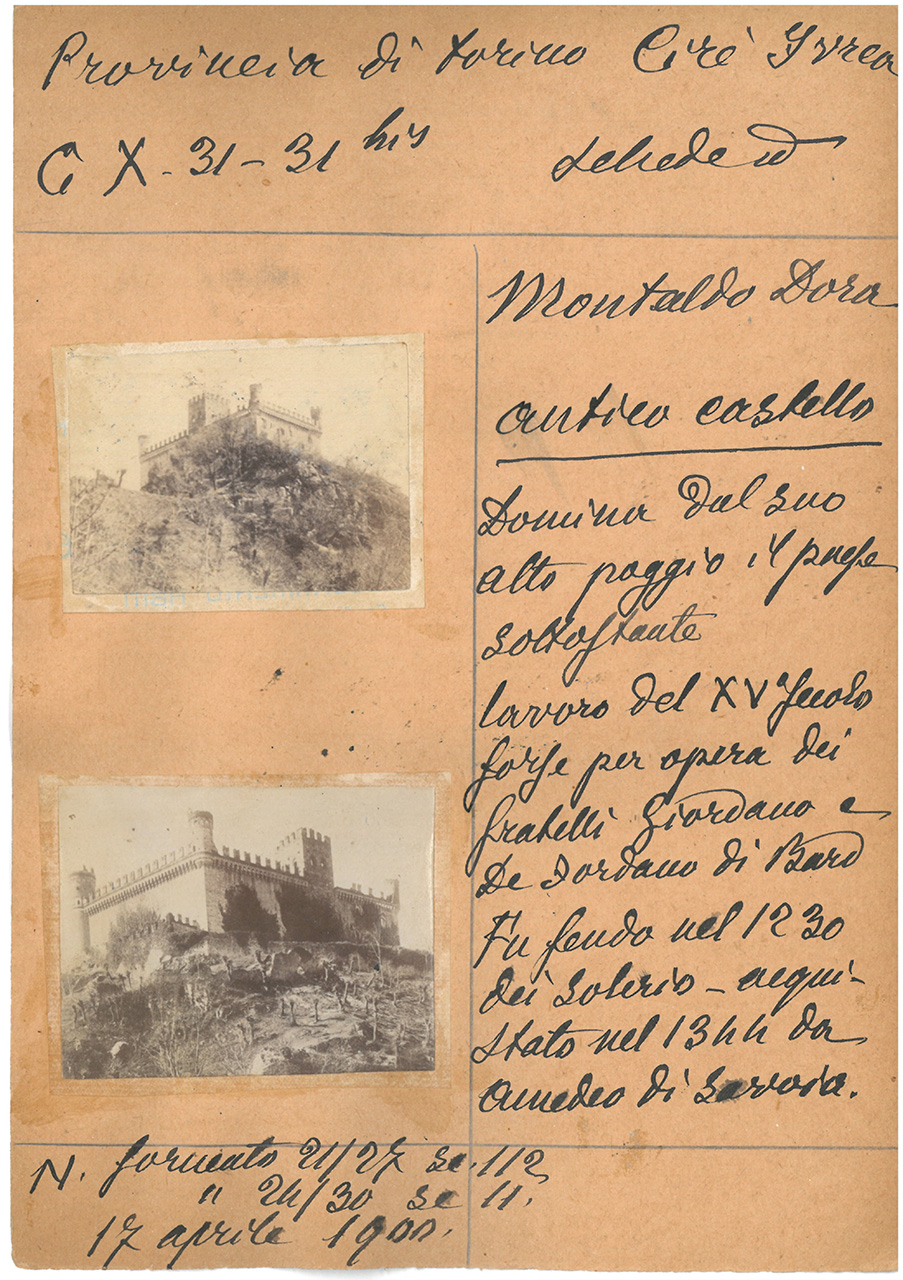 Provincia di Torino Cirè Yvrea
C X - 31 - 31 bis
schede
Montaldo Dora
antico castello
Domina dal suo
alto poggio il paese
sottostante
lavoro del XV secolo
forse per opera dei
fratelli Giordano e
De Jordano di Bard
Fu feudo nel 1230
dei Solerio - acqui-
stato nel 1344 da
Amedeo di Savoia.
N. formato 21/27 sc. 112
" 24/30 sc 11.
17 aprile 1900.